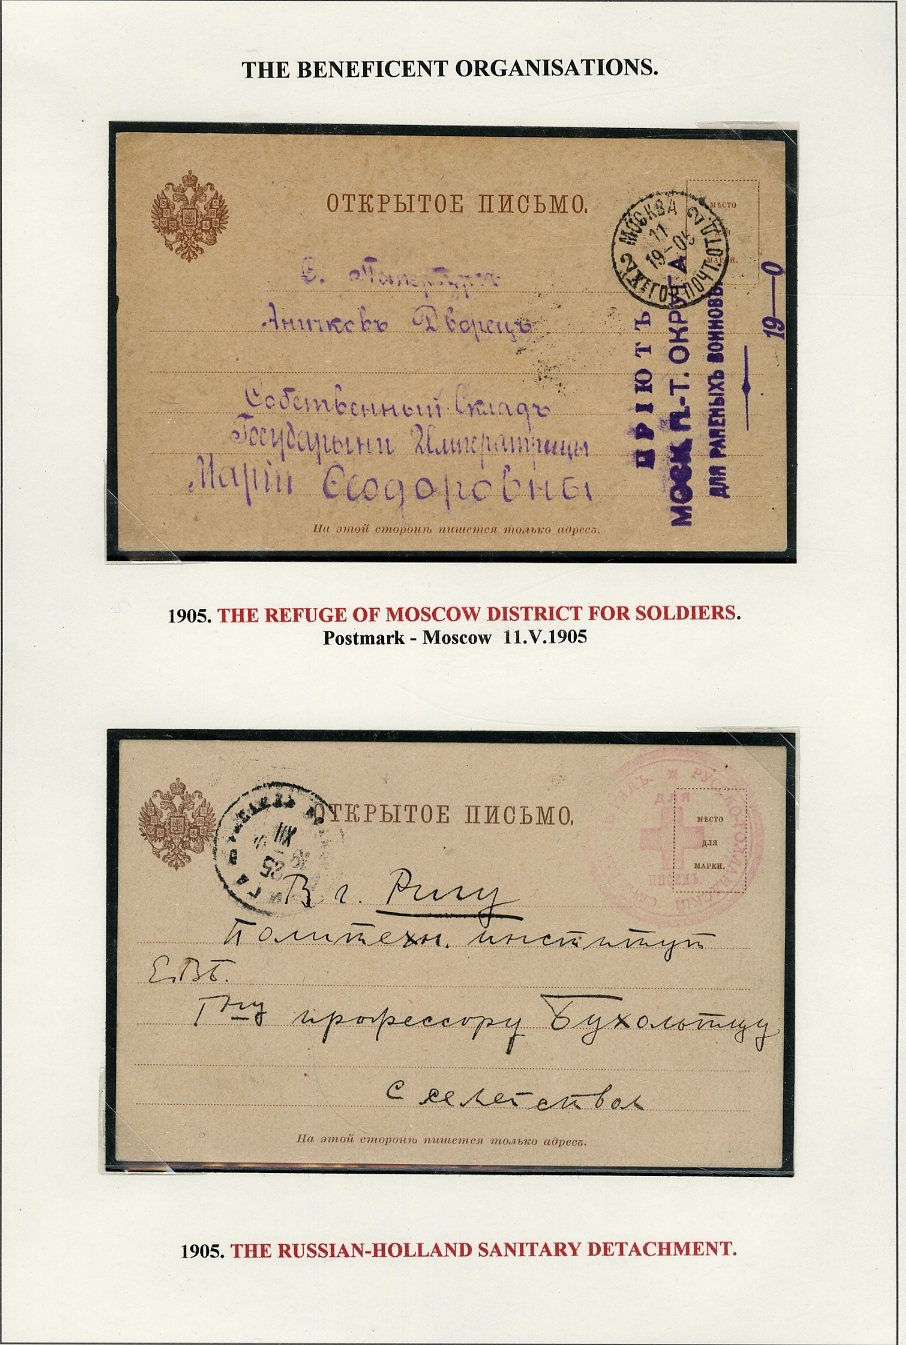 THE BENEFICENT ORGANISATIONS.
ОТКРЫТОЕ ПИСЬМО.
МѢСТО
МАРКИ.
МОСКВА
11
19-05
С. Петербургъ
Аничковъ Дворецъ
Собственный Складъ
Государыни Императрицы
Маріи Ѳеодоровны
ПРІЮТЪ
МОСК. П.-Т. ОКРУГА
ДЛЯ РАНЕНЫХЪ ВОИНОВЪ
19—0
На этой сторонѣ пишется только адресъ.
1905. THE REFUGE OF MOSCOW DISTRICT FOR SOLDIERS.
Postmark - Moscow 11.V.1905
ОТКРЫТОЕ ПИСЬМО.
РУССКО-ГОЛЛАНДСКІЙ
ДЛЯ
ПИСЕМЪ
МѢСТО
ДЛЯ
МАРКИ.
XII
В г. Ригу
Политехн. институт
Е.В.Б.
Гну профессору Бухгольтцу
с семейством
На этой сторонѣ пишется только адресъ.
1905. THE RUSSIAN-HOLLAND SANITARY DETACHMENT.